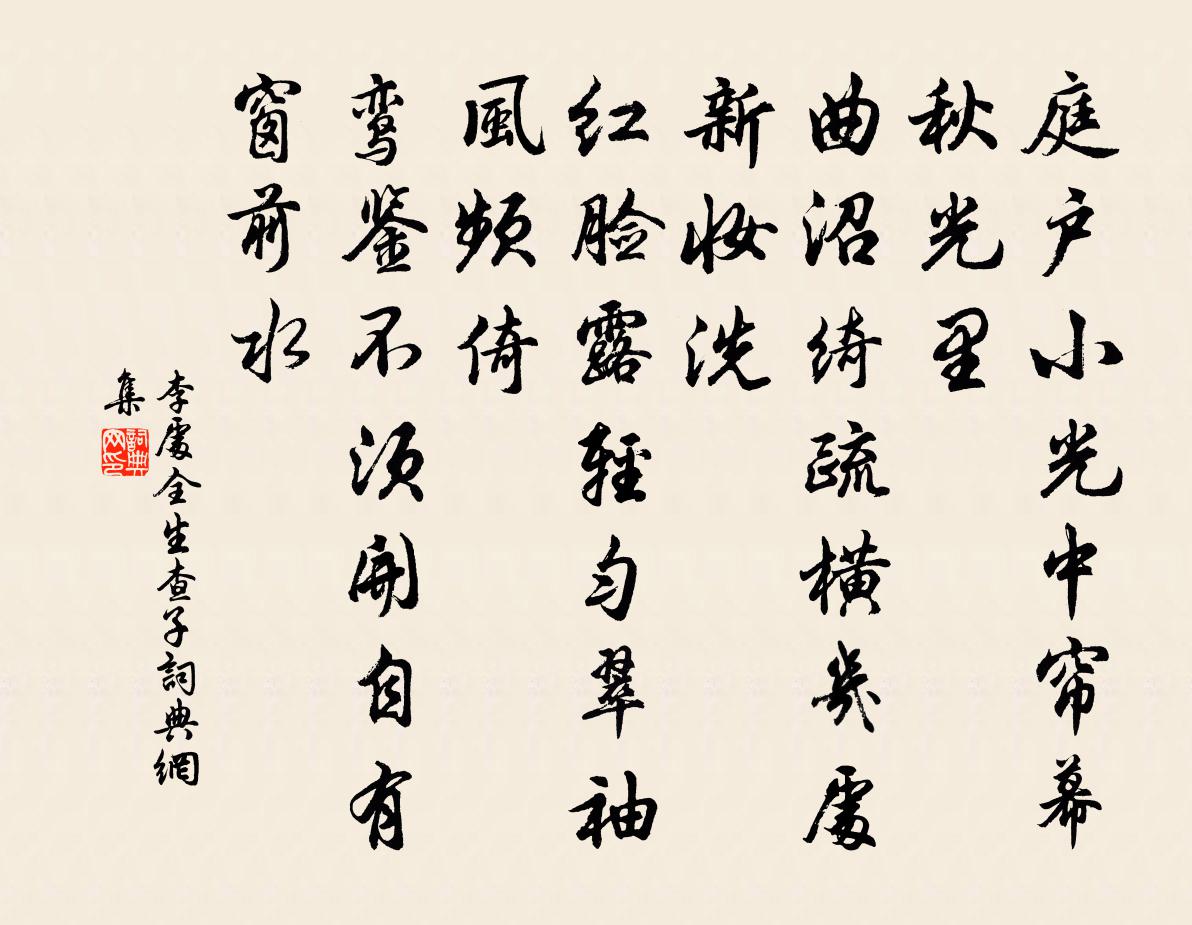 庭户小光中帘幕
秋光里
曲沼绮疏横幾處
新妝洗
红脸露輕匀翠袖
風頻倚
鸾鉴不须開自有
窗前水
李處全生查子詞典網
集
詞典网印